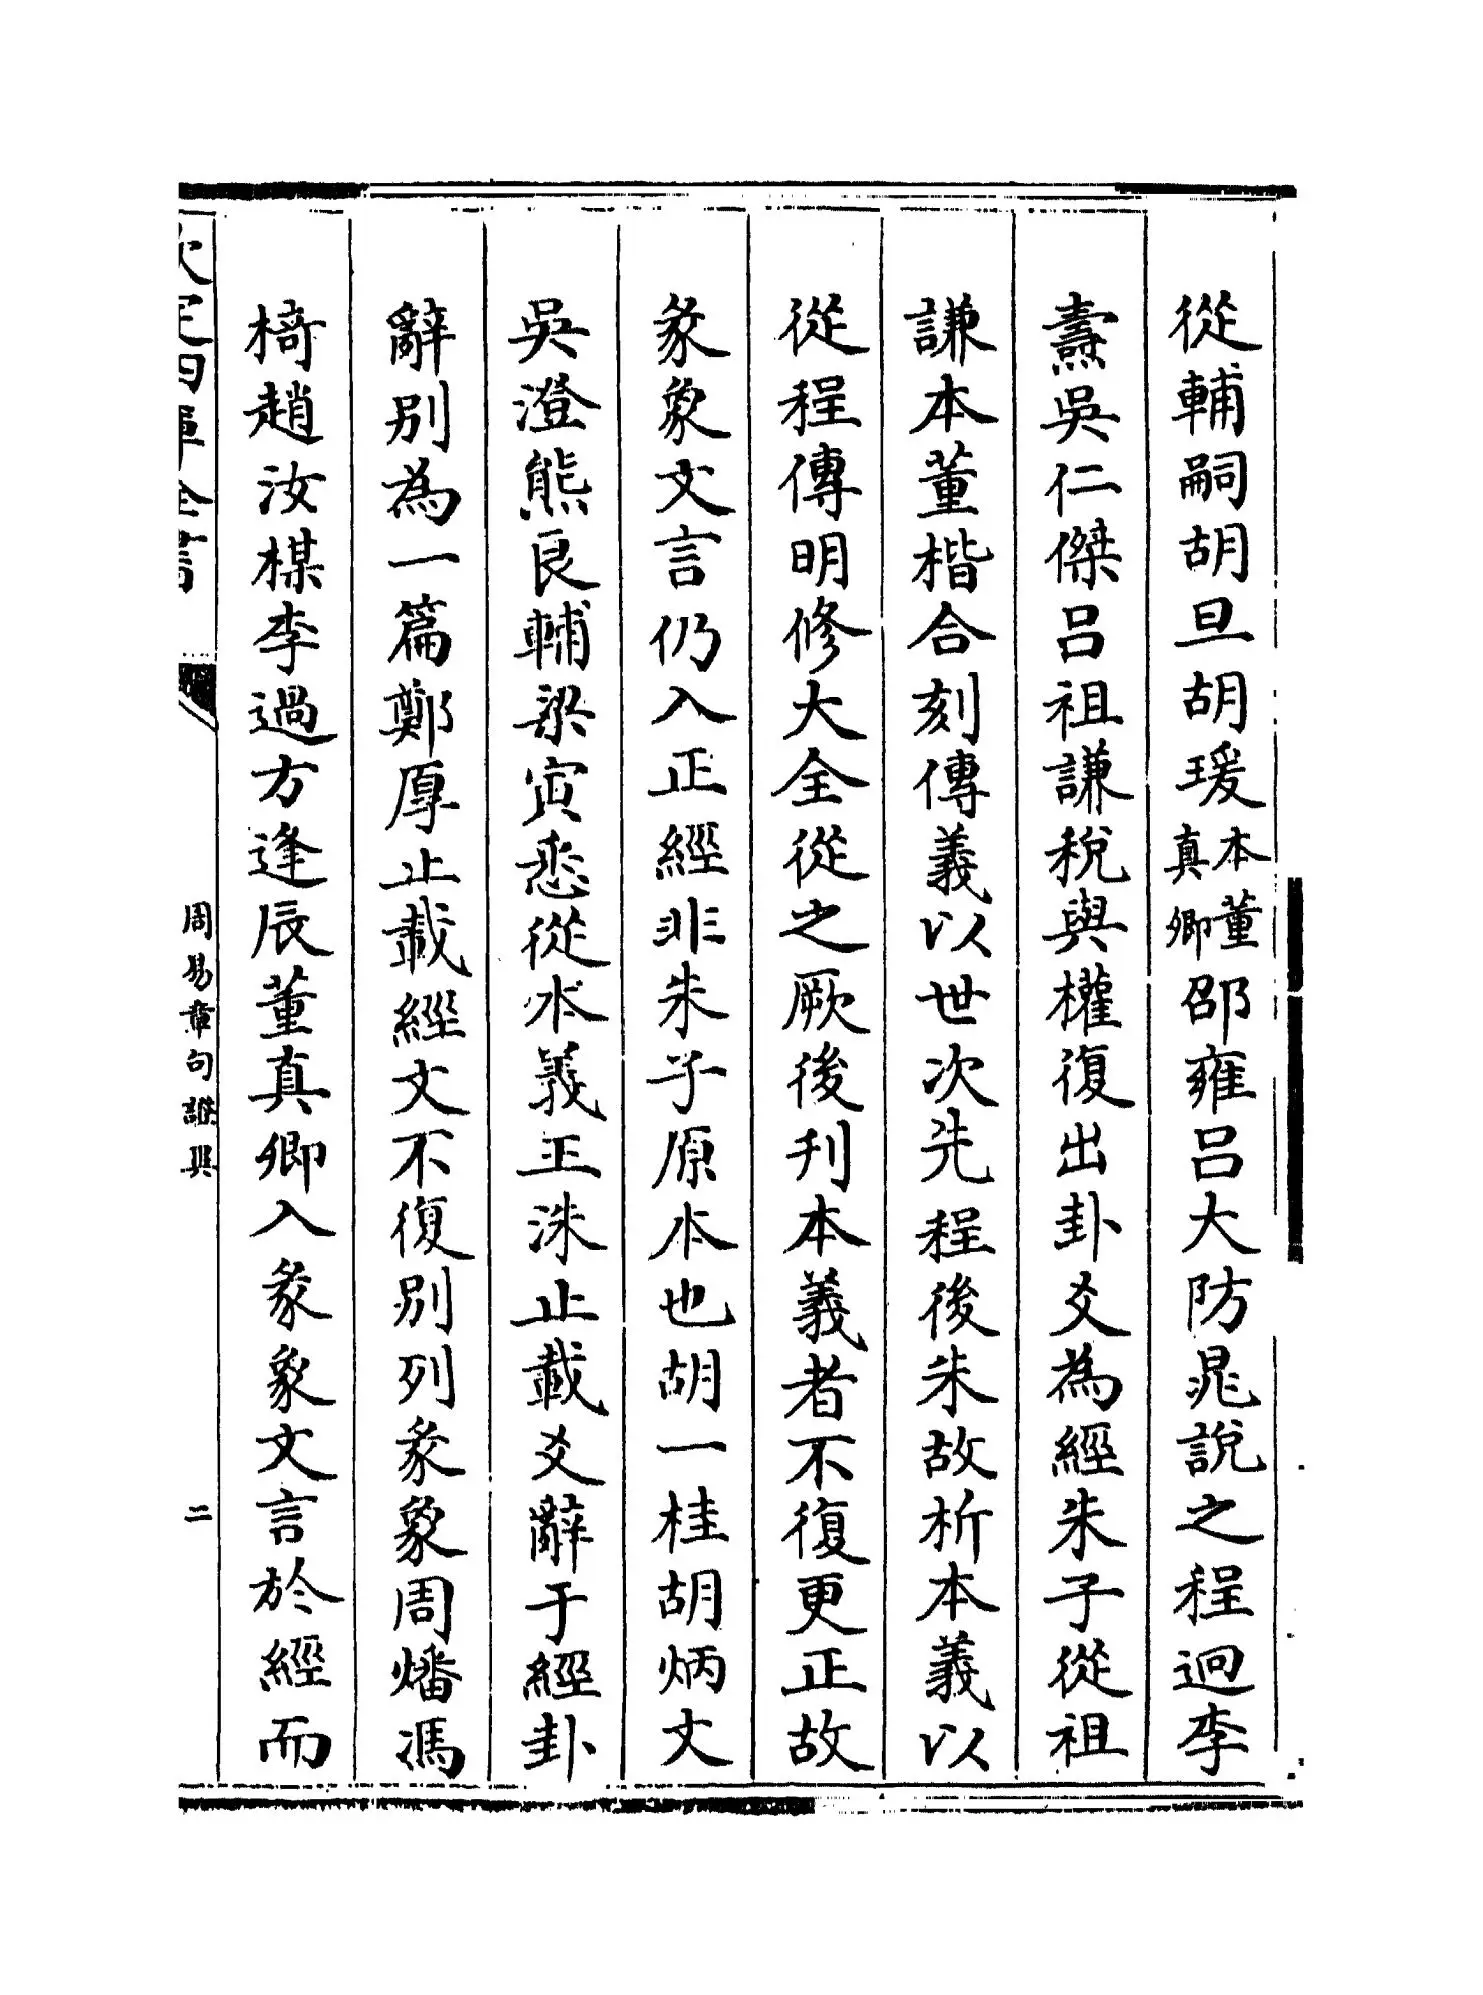 從輔嗣胡旦胡瑗本董真卿邵雍呂大防晁說之程迥李
燾吳仁傑呂祖謙稅與權復出卦爻為經朱子從祖
謙本董楷合刻傳義以世次先程後朱故析本義以
從程傳明修大全從之厥後刋本義者不復更正故
彖象文言仍入正經非朱子原本也胡一桂胡炳文
吳澄熊良輔梁寅悉從本義王洙止載爻辭于經卦
辭別為一篇鄭厚止載經文不復別列彖象周燔馮
椅趙汝楳李過方逢辰董真卿入彖象文言於經而
欽定四庫全書
周易章句證異
二